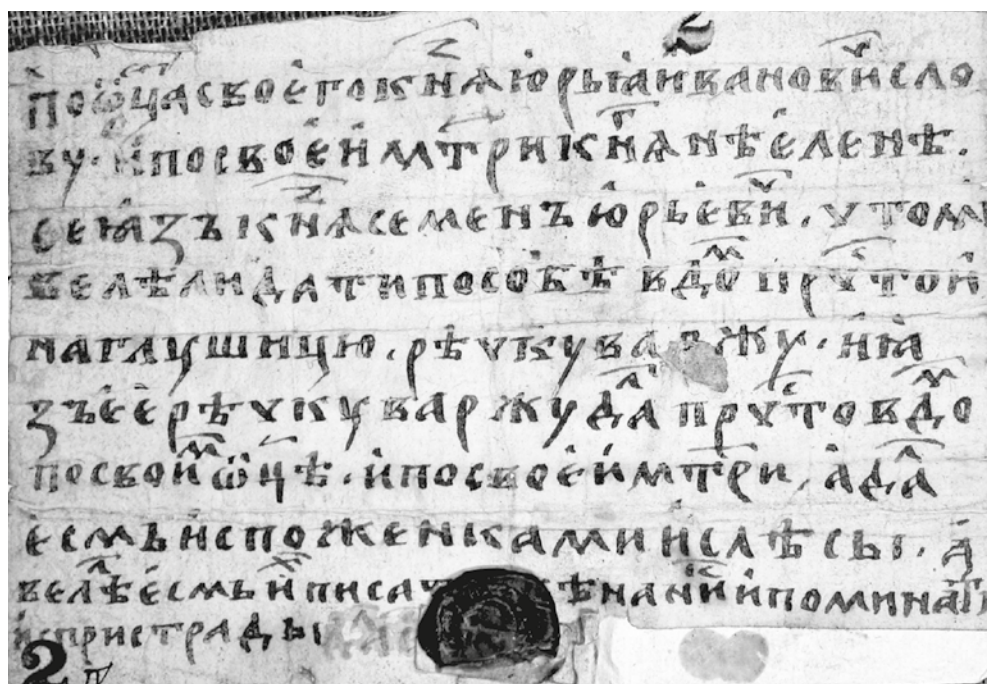 по ѿца своего кнѧⷥ юрьꙗ ивановиⷱ сло
ву · и по своеи мт҃ри кнѧⷢ҇нѣ еленѣ .
се ꙗзъ кнѧⷥ семенъ юрьевиⷱ . что м
велѣли дати по собѣ в доⷨ прⷭчтои
на глушицю . рѣчку варжу · и ꙗ
зъ еѣ рѣчку варжу даⷧ прⷭчтои в доⷨ
по своиⷨ ѡц҃ѣ . и по своеи мт҃ри . а даⷧ
есмь и с поженками и с лѣсы . а
велѣⷧ есмь иⷯ писа и помина
и пристрады
2